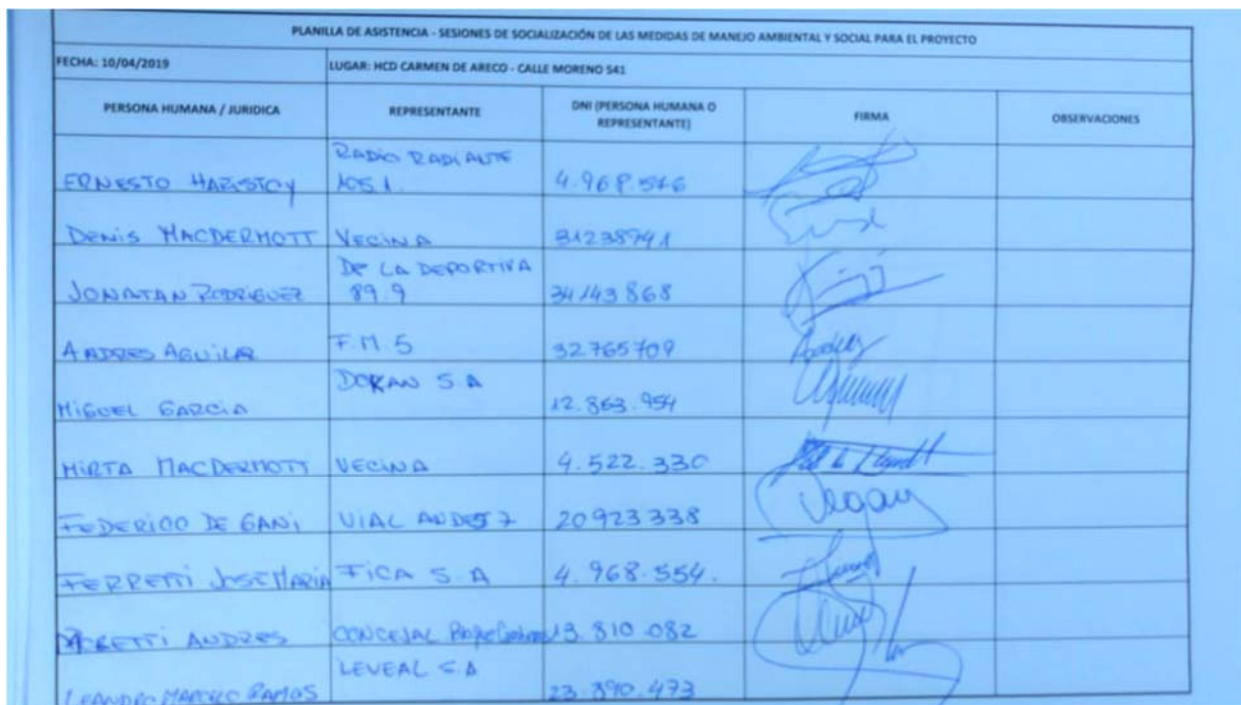 PLANILLA DE ASISTENCIA - SESIONES DE SOCIALIZACIÓN DE LAS MEDIDAS DE MANEJO AMBIENTAL Y SOCIAL PARA EL PROYECTO
FECHA: 10/04/2019 LUGAR: HCD CARMEN DE ARECO - CALLE MORENO 541
PERSONA HUMANA / JURIDICA REPRESENTANTE DNI (PERSONA HUMANA O REPRESENTANTE) FIRMA OBSERVACIONES
RADIO RADIANTE
ERNESTO HARISTOY 105.1. 4.968.546
DENIS MACDERMOTT VECINA 31238941
DE LA DEPORTIVA
JONATAN RODRIGUEZ 89.9 34143868
ANDRES AGUILAR F.M. 5 32765709
DORAN S A
MIGUEL GARCIA 12.863.954
MIRTA MACDERMOTT VECINA 4.522.330
FEDERICO DE GANI VIAL 20923338
FERRETTI JOSE MARIA FICA S.A 4.968.554.
ANDRES CONCEJAL 13.810.082
LEVEAL S.A
LEANDRO MARCELO RAMOS 23.890.473